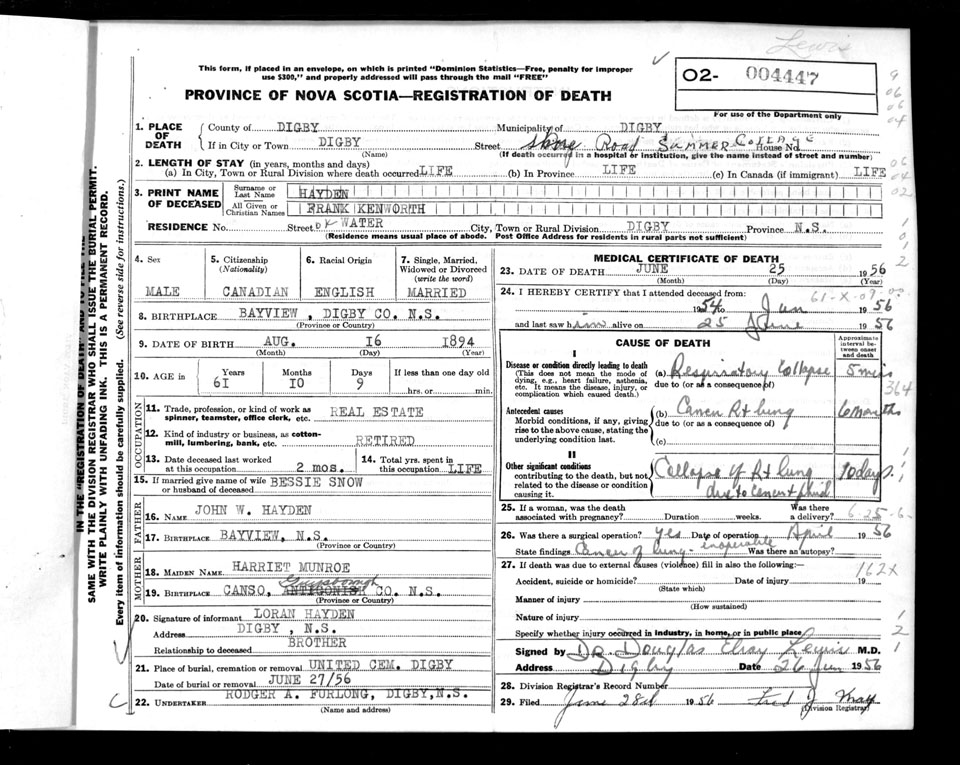 Lewis
This form, if placed in an envelope, on which is printed "Dominion Statistics—Free, penalty for improper
use $300," and properly addressed will pass through the mail "FREE"
PROVINCE OF NOVA SCOTIA—REGISTRATION OF DEATH
02- 004447
For use of the Department only
1. PLACE OF DEATH County of DIGBY Municipality of DIGBY
If in City or Town DIGBY Street Shore Road SUMMER COTTAGE House No.
(Name) (If death occurred in a hospital or institution, give the name instead of street and number)
2. LENGTH OF STAY (in years, months and days)
(a) In City, Town or Rural Division where death occurred LIFE (b) In Province LIFE (c) In Canada (if immigrant) LIFE
3. PRINT NAME OF DECEASED Surname or Last Name HAYDEN
All Given or Christian Names FRANK KENWORTH
RESIDENCE No. Street WATER City, Town or Rural Division DIGBY Province N.S.
(Residence means usual place of abode. Post Office Address for residents in rural parts not sufficient)
4. Sex 5. Citizenship (Nationality) 6. Racial Origin 7. Single, Married, Widowed or Divorced (write the word)
MALE CANADIAN ENGLISH MARRIED
8. BIRTHPLACE BAYVIEW, DIGBY CO. N.S.
(Province or Country)
9. DATE OF BIRTH AUG. 16 1894
(Month) (Day) (Year)
10. AGE in Years Months Days If less than one day old
61 10 9 hrs. or min.
OCCUPATION
11. Trade, profession, or kind of work as spinner, teamster, office clerk, etc. REAL ESTATE
12. Kind of industry or business, as cotton-mill, lumbering, bank, etc. RETIRED
13. Date deceased last worked at this occupation 2 mos. 14. Total yrs. spent in this occupation LIFE
15. If married give name of wife or husband of deceased BESSIE SNOW
FATHER
16. NAME JOHN W. HAYDEN
17. BIRTHPLACE BAYVIEW, N.S.
(Province or Country)
MOTHER
18. MAIDEN NAME HARRIET MUNROE
Guysborough
19. BIRTHPLACE CANSO, ANTIGONISH CO. N.S.
(Province or Country)
20. Signature of informant LORAN HAYDEN
Address DIGBY, N.S.
Relationship to deceased BROTHER
21. Place of burial, cremation or removal UNITED CEM. DIGBY
Date of burial or removal JUNE 27/56
22. UNDERTAKER RODGER A. FURLONG, DIGBY, N.S.
(Name and address)
MEDICAL CERTIFICATE OF DEATH
23. DATE OF DEATH JUNE 25 1956
(Month) (Day) (Year)
24. I HEREBY CERTIFY that I attended deceased from:
1954 to Jun 1956
and last saw him alive on 25 June 1956
CAUSE OF DEATH Approximate interval between onset and death
I
Disease or condition directly leading to death (a) Respiratory Collapse 5 mins
(This does not mean the mode of dying, e.g., heart failure, asthenia, etc. It means the disease, injury, or complication which caused death.) due to (or as a consequence of)
Antecedent causes (b) Cancer Rt lung 6 months
Morbid conditions, if any, giving rise to the above cause, stating the underlying condition last. due to (or as a consequence of)
(c)
II
Other significant conditions Collapse of Rt lung 10 days
contributing to the death, but not related to the disease or condition causing it. due to Cancer + fluid
25. If a woman, was the death associated with pregnancy? Duration weeks. Was there a delivery?
26. Was there a surgical operation? yes Date of operation April 1956
State findings Cancer of lung - inoperable Was there an autopsy?
27. If death was due to external causes (violence) fill in also the following:—
Accident, suicide or homicide? Date of injury 19
(State which)
Manner of injury
(How sustained)
Nature of injury
Specify whether injury occurred in industry, in home, or in public place
Signed by Dr. Douglas Lewis M.D.
Address Digby Date 26 Jun 1956
28. Division Registrar's Record Number
29. Filed June 28th 1956 Fred J
(Division Registrar)
364
162X
SAME WITH THE DIVISION REGISTRAR WHO SHALL ISSUE THE BURIAL PERMIT.
WRITE PLAINLY WITH UNFADING INK. THIS IS A PERMANENT RECORD.
Every item of information should be carefully supplied. (See reverse side for instructions.)